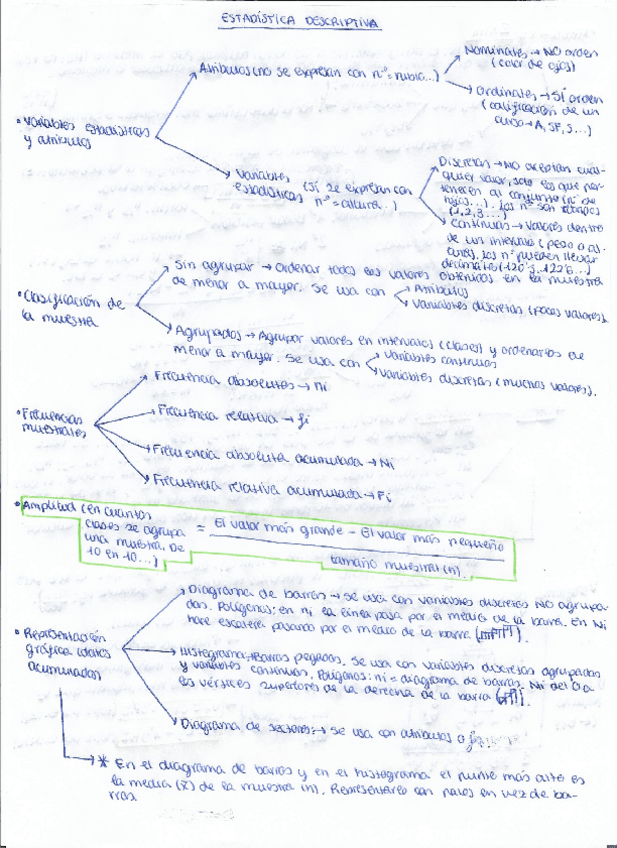 ESTADÍSTICA DESCRIPTIVA
• Variables estadísticas
y atributos
Atributos (no se expresan con nº = rubio...)
Nominales → NO orden
(color de ojos)
Ordinales → SÍ orden
(calificación de un
curso → A, SF, S...)
Variables
estadísticas (Sí se expresan con
nº = altura...)
Discretas → NO aceptan cual-
quier valor, solo los que per-
tenecen al conjunto (nº de
hijos...). Los nº son
(1, 2, 3...)
Continuas → Valores dentro
de un intervalo (peso o
Los nº pueden llevar
decimales
• Clasificación de
la muestra
Sin agrupar → Ordenar todos los valores obtenidos en la muestra
de menor a mayor. Se usa con
Atributos
Variables discretas (pocos valores).
Agrupados → Agrupar valores en intervalos (clases) y ordenarlos de
menor a mayor. Se usa con
Variables continuas
Variables discretas (muchos valores).
• Frecuencias
muestrales
Frecuencia absolutas → ni
Frecuencia relativa → fi
Frecuencia absoluta acumulada → Ni
Frecuencia relativa acumulada → Fi
• Amplitud (en cuantas
clases se agrupa
una muestra. De
10 en 10...)
= El valor más grande - El valor más pequeño
tamaño muestral (n).
• Representación
gráfica (datos
acumulados)
Diagrama de barras → se usa con variables discretas NO agrupa-
das. Polígonos: en ni la línea pasa por el medio de la barra. En Ni
hace escalera pasando por el medio de la barra
Histograma: Barras pegadas. Se usa con variables discretas agrupadas
y variables continuas. Polígonos: ni = diagrama de barras. Ni del 0 a
los vértices superiores de la derecha de la barra
Diagrama de sectores: → Se usa con atributos o
* En el diagrama de barras y en el histograma el punto más alto es
la media (x̄) de la muestra (n). Representarlo con palos en vez de ba-
rras.